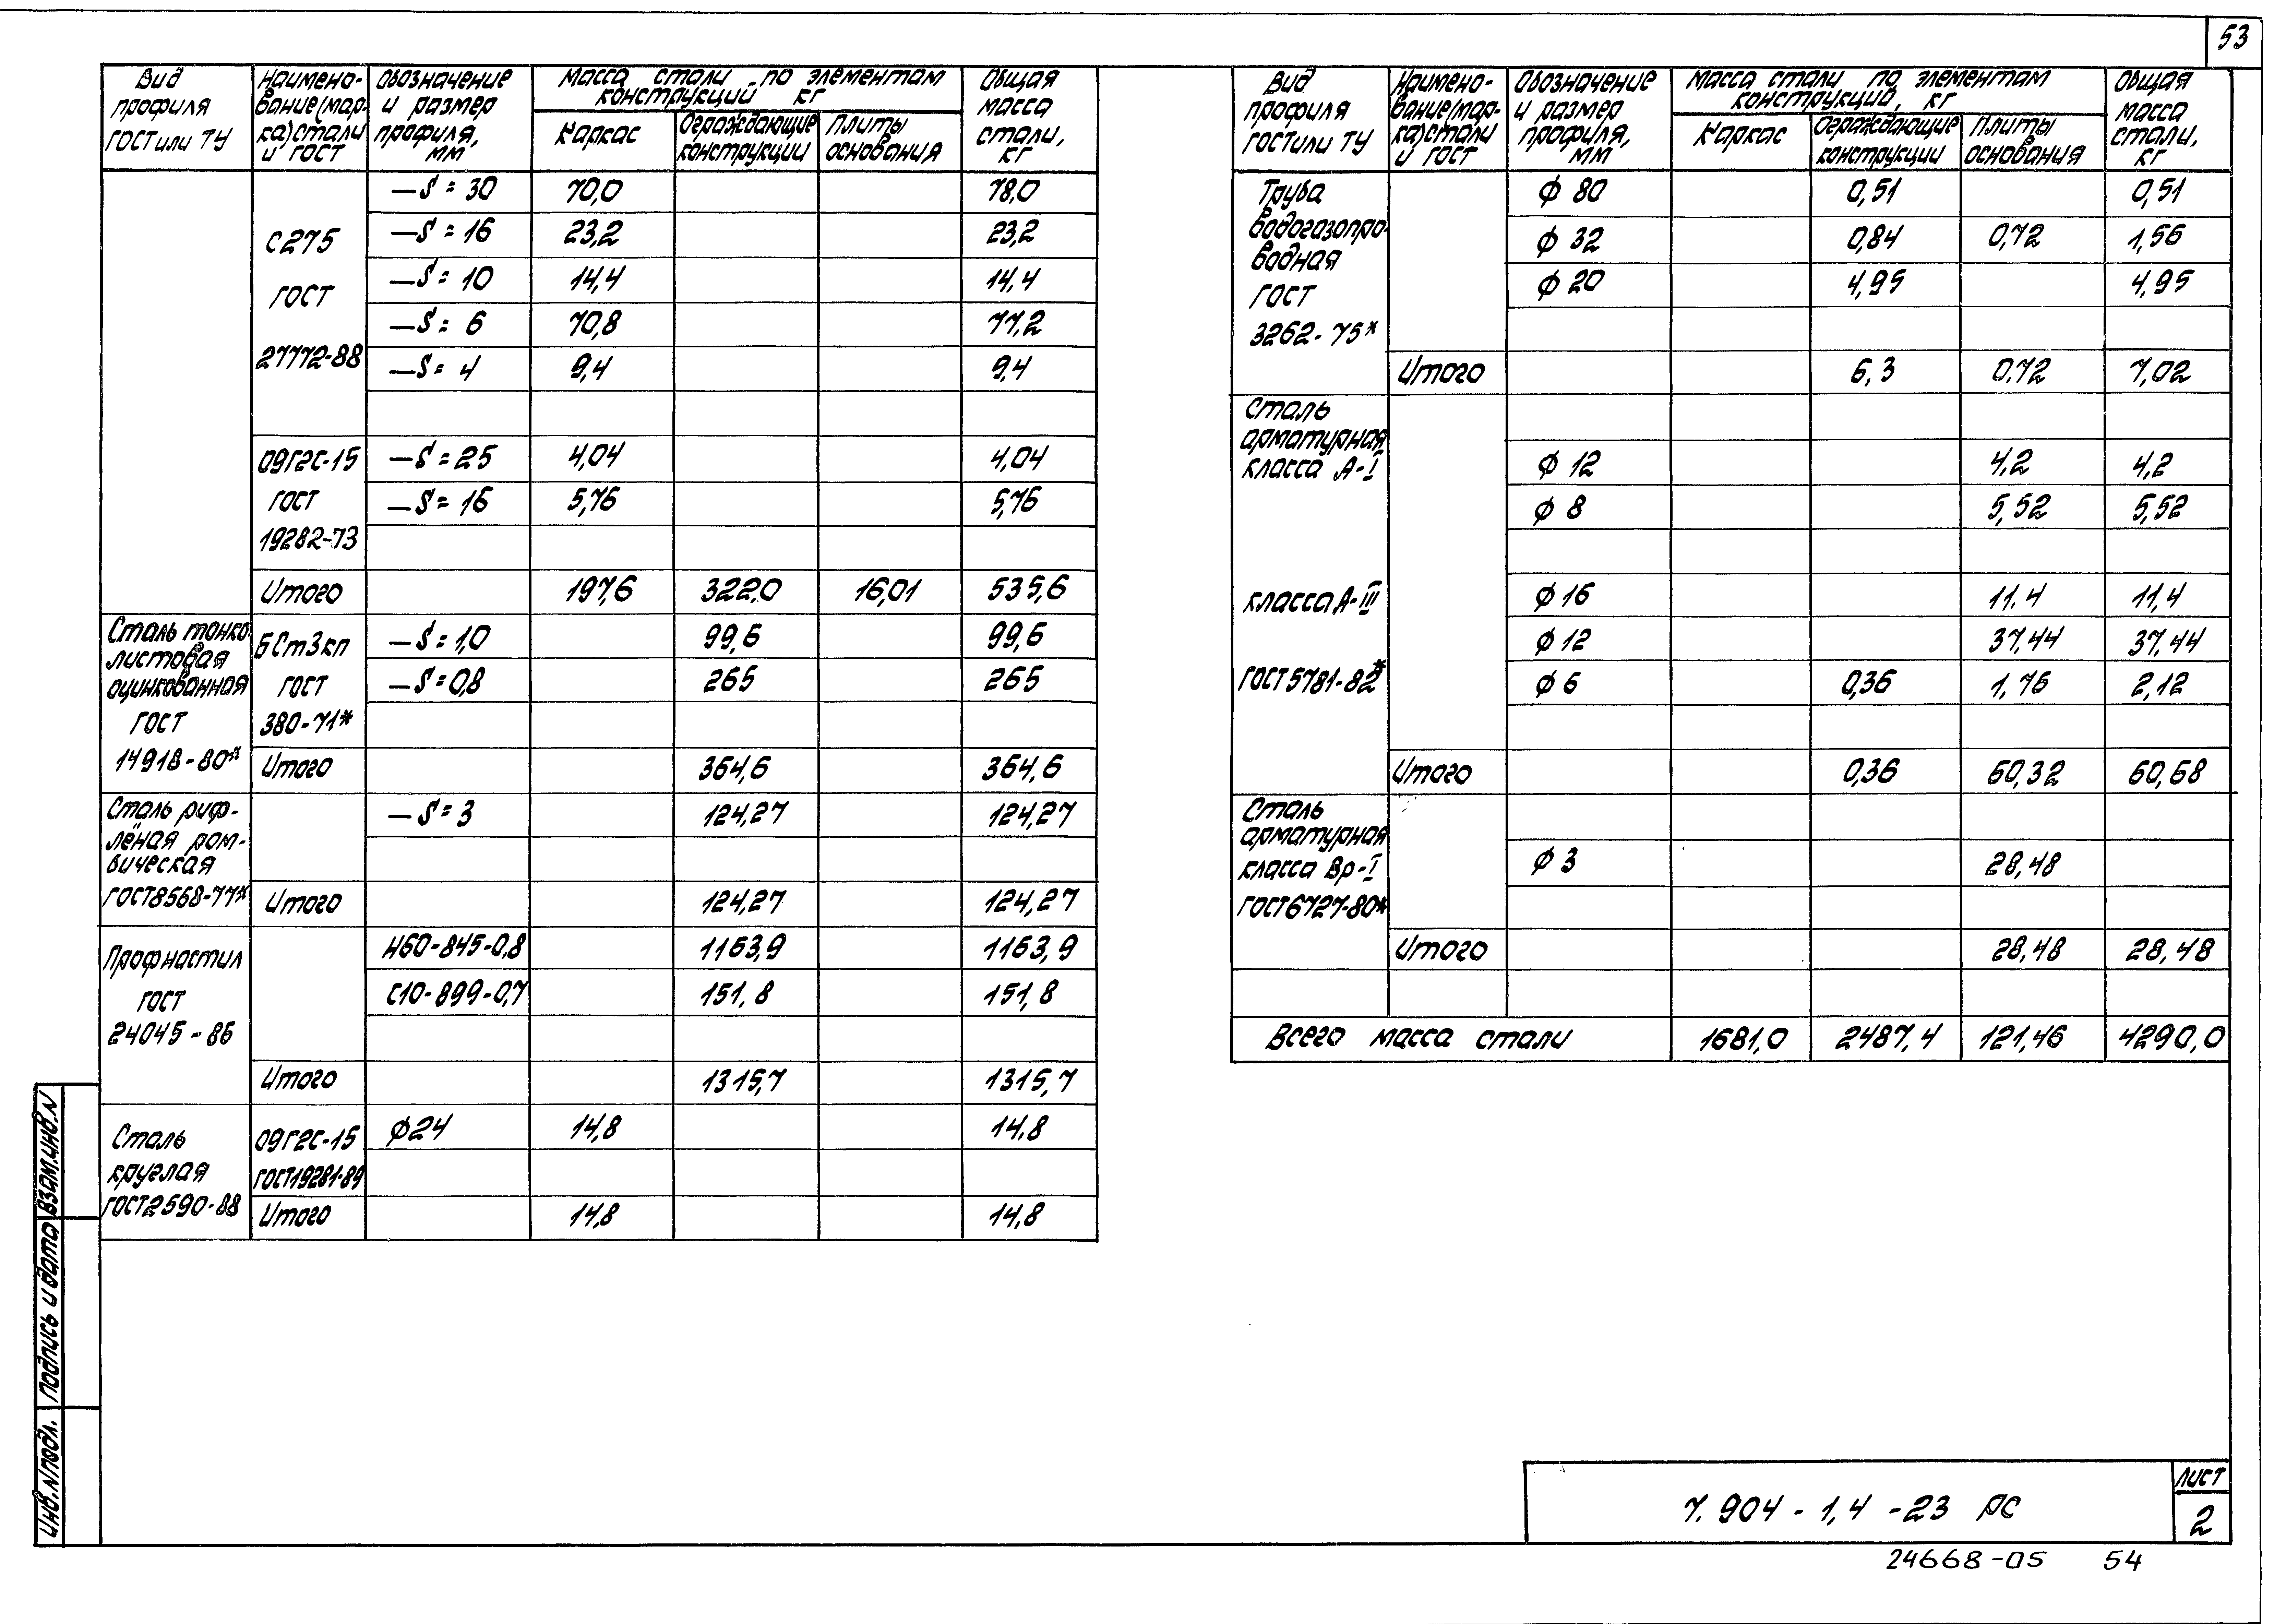 53
Вид профиля ГОСТ или ТУ | Наименование (марка) стали и ГОСТ | Обозначение и размер профиля, мм | Масса стали по элементам конструкций кг | Общая масса стали, кг
Каркас | Ограждающие конструкции | Плиты основания
С275 ГОСТ 27772-88
—S = 30 70,0 78,0
—S = 16 23,2 23,2
—S = 10 14,4 14,4
—S = 6 70,8 77,2
—S = 4 9,4 9,4
09Г2С-15 ГОСТ 19282-73
—S = 25 4,04 4,04
—S = 16 5,76 5,76
Итого 197,6 322,0 16,01 535,6
Сталь тонколистовая оцинкованная ГОСТ 14918-80*
БСт3кп ГОСТ 380-71*
—S = 1,0 99,6 99,6
—S = 0,8 265 265
Итого 364,6 364,6
Сталь рифлёная ромбическая ГОСТ 8568-77*
—S = 3 124,27 124,27
Итого 124,27 124,27
Профнастил ГОСТ 24045-86
Н60-845-0,8 1163,9 1163,9
С10-899-0,7 151,8 151,8
Итого 1315,7 1315,7
Сталь круглая ГОСТ 2590-88
09Г2С-15 ГОСТ 19281-89
ф24 14,8 14,8
Итого 14,8 14,8
Вид профиля ГОСТ или ТУ | Наименование (марка) стали и ГОСТ | Обозначение и размер профиля, мм | Масса стали по элементам конструкций, кг | Общая масса стали, кг
Каркас | Ограждающие конструкции | Плиты основания
Труба водогазопроводная ГОСТ 3262-75*
ф 80 0,51 0,51
ф 32 0,84 0,72 1,56
ф 20 4,95 4,95
Итого 6,3 0,72 7,02
Сталь арматурная класса А-I
ф 12 4,2 4,2
ф 8 5,52 5,52
класса А-III
ф 16 11,4 11,4
ф 12 37,44 37,44
ГОСТ 5781-82*
ф 6 0,36 1,76 2,12
Итого 0,36 60,32 60,68
Сталь арматурная класса Вр-I ГОСТ 6727-80*
ф 3 28,48
Итого 28,48 28,48
Всего масса стали 1681,0 2487,4 121,46 4290,0
Инв.N подл. Подпись и дата Взам.инв.N
7.904-1,4-23 РС
Лист
2
24668-05 54